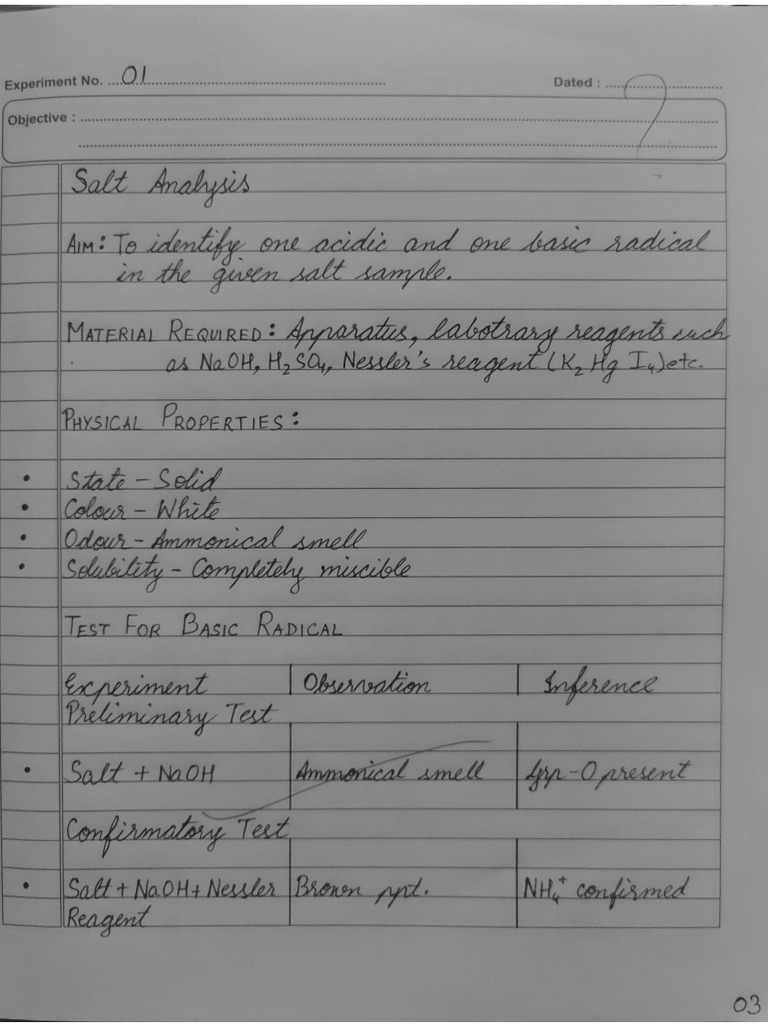 Experiment No. 01
Dated :
Objective :
Salt Analysis
AIM: To identify one acidic and one basic radical
in the given salt sample.
MATERIAL REQUIRED: Apparatus, labotrary reagents such
as NaOH, H₂SO₄, Nessler's reagent (K₂ Hg I₄) etc.
PHYSICAL PROPERTIES:
• State - Solid
• Colour - White
• Odour - Ammonical smell
• Solubility - Completely miscible
TEST FOR BASIC RADICAL
Experiment Observation Inference
Preliminary Test
• Salt + NaOH Ammonical smell Grp-O present
Confirmatory Test
• Salt + NaOH + Nessler Brown ppt. NH₄⁺ confirmed
Reagent
03